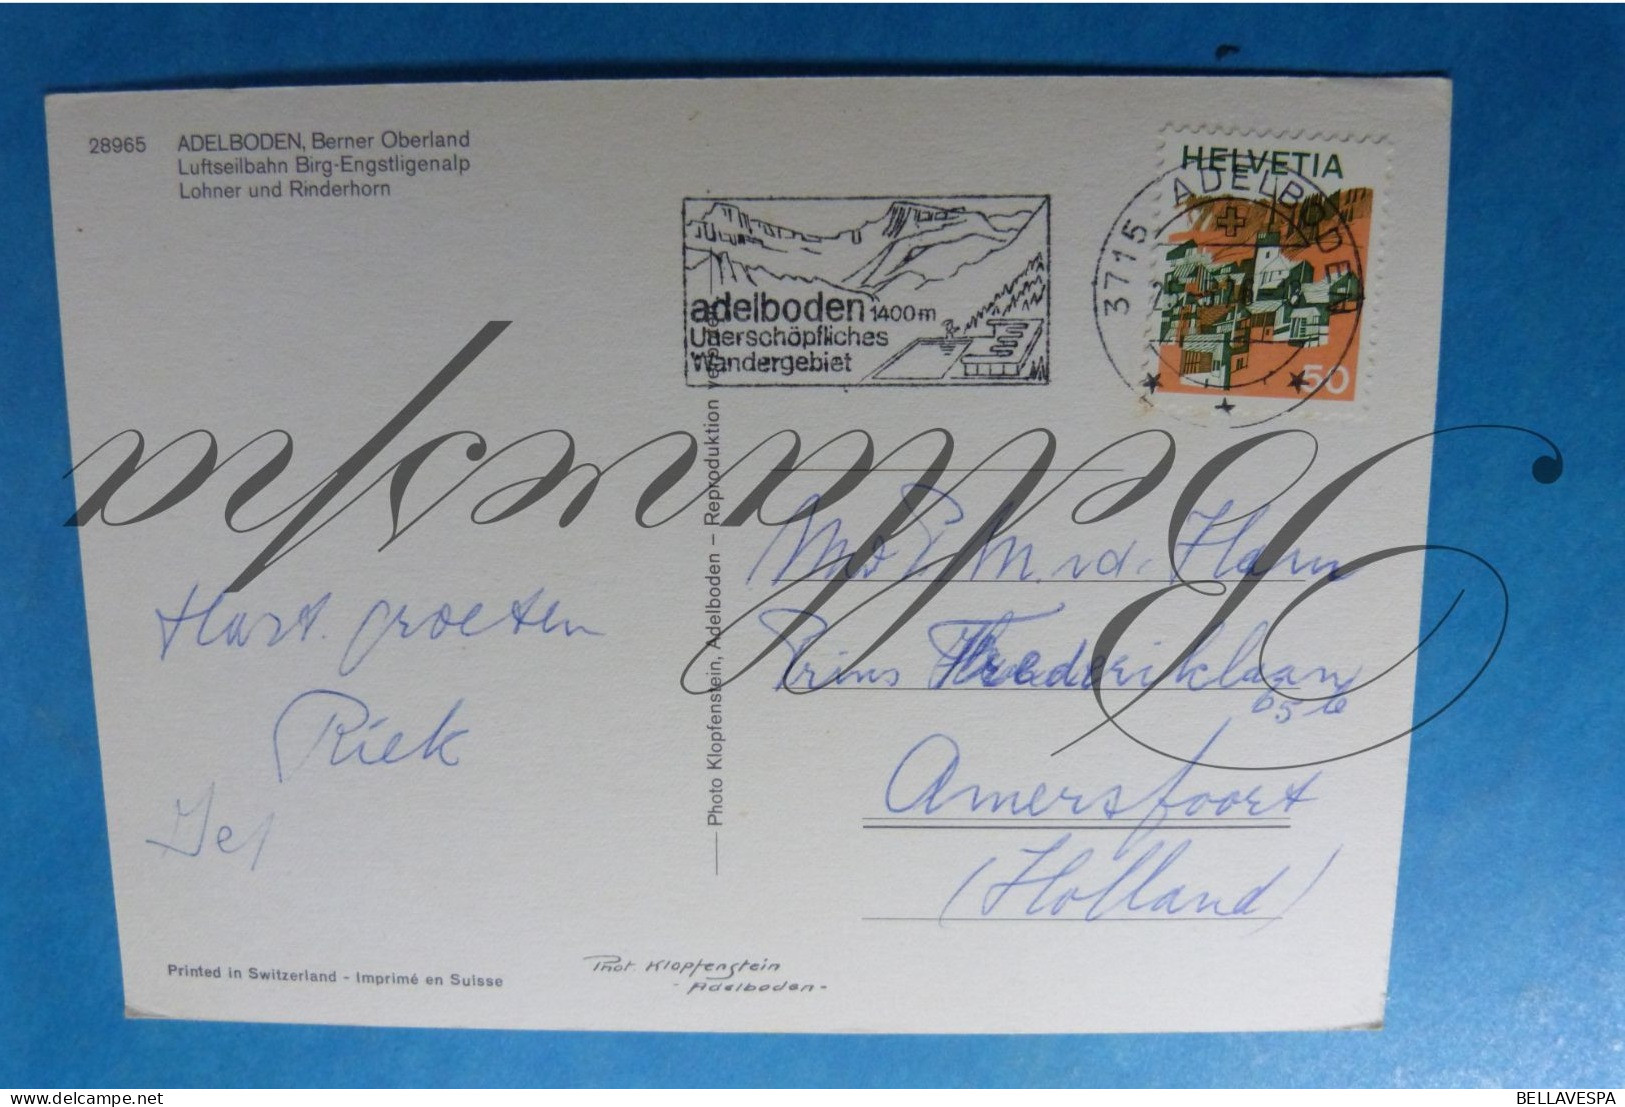 28965 ADELBODEN, Berner Oberland
Luftseilbahn Birg-Engstligenalp
Lohner und Rinderhorn
adelboden 1400 m
Unerschöpfliches
Wandergebiet
3715 ADELBODEN
HELVETIA
50
Photo Klopfenstein, Adelboden – Reproduktion
Hart. groeten
Riek
E. M. v.d. Ham
Prins Frederiklaan
Amersfoort
(Holland)
Printed in Switzerland - Imprimé en Suisse
Phot. Klopfenstein
- Adelboden -
Bellavespa
BELLAVESPA